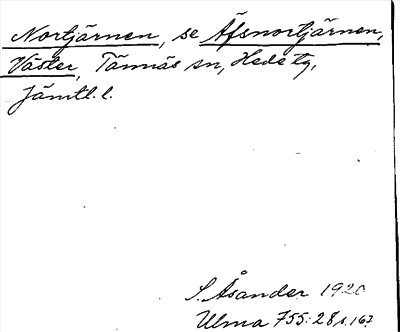 Nortjärnen, se Äfsnortjärnen,
Väster, Tännäs sn, Hede tg,
Jämtl. l.
S. Åsander 1920
Ulma 755:28 s. 167